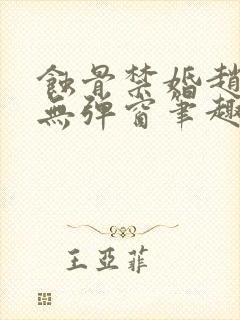 蝕骨禁婚趙
無彈窗筆趣
王亞菲